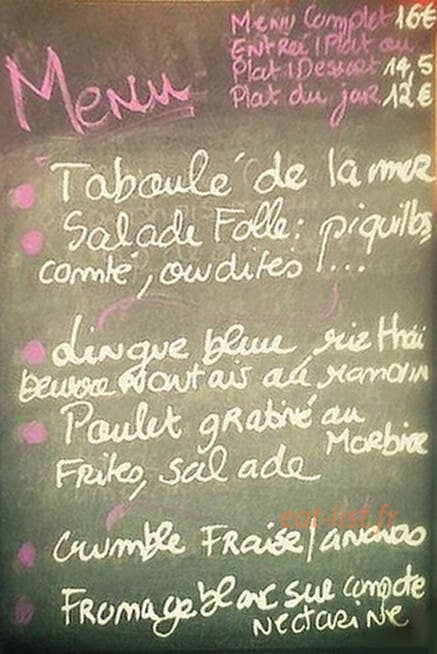 Menu
Menu Complet 16€
Entrée/Plat ou
Plat/Dessert 14,5
Plat du jour 12€
Taboulé de la mer
Salade Folle: piquillos
comté, oudités !...
Lingue bleue, riz Thaï
beurre au romarin
Poulet gratiné au
Morbier
Frites, salade
eat-list.fr
Crumble Fraise/ananas
Fromage blanc sur compote
Nectarine